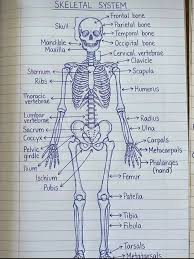 SKELETAL SYSTEM
Frontal bone
Skull
Parietal bone
Temporal bone
Mandible
Occipital bone
Maxilla
Cervical vertebrae
Clavicle
Sternum
Scapula
Ribs
Humerus
Thoracic
vertebrae
Lumbar
vertebrae
Radius
Sacrum
Ulna
Coccyx
Carpals
Pelvic
girdle
Metacarpals
Phalanges
(hand)
Ilium
Ischium
Femur
Pubis
Patella
Tibia
Fibula
Tarsals
Metatarsals